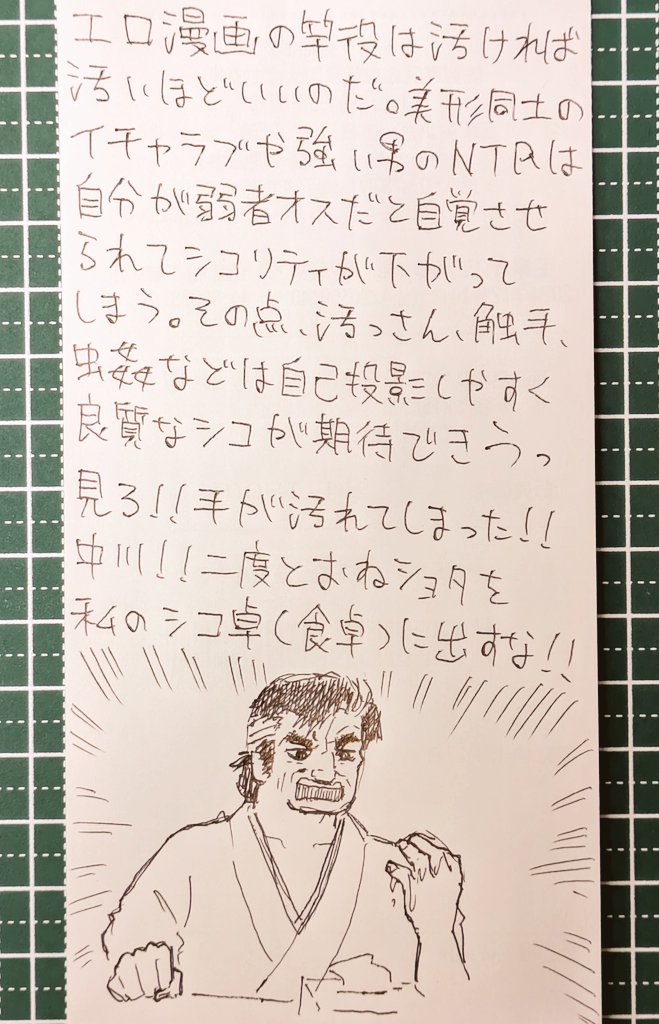 エロ漫画の竿役は汚ければ
汚いほどいいのだ。美形同士の
イチャラブや強い男のNTRは
自分が弱者オスだと自覚させ
られてシコリティが下がって
しまう。その点、汚っさん、触手、
虫姦などは自己投影しやすく
良質なシコが期待できうっ
見ろ!!手が汚れてしまった!!
中川!!二度とおねショタを
私のシコ卓(食卓)に出すな!!